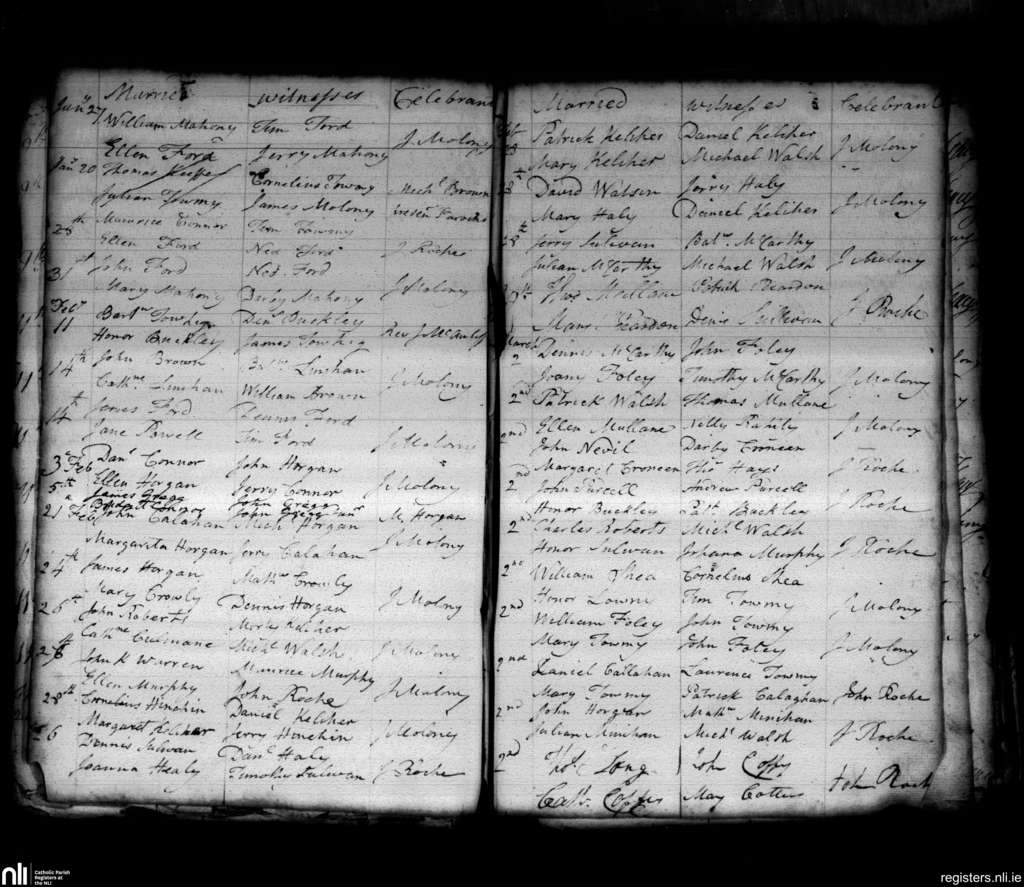 Married witnesses Celebrant
Jany 27 William Mahony Tim Ford J Molony
Ellen Ford Jerry Mahony
Jany 20 Thomas Keeffe Cornelius Towmy Mich. Brown
Julian Towmy James Molony
28th Maurice Connor Tim Towmy
Ellen Ford Ned Ford J Roche
31st John Ford Ned Ford
Mary Mahony Darby Mahony J Molony
Feby 11 Bartw Towhig Denl Buckley Rev J McAuley
Honor Buckley James Towhig
14th John Brown Linshan
Cathne Linshan William Brown J Molony
14th James Ford Dennis Ford
Jane Powell Tim Ford J Molony
3d Feb Danl Connor John Horgan
Ellen Horgan Jerry Connor J Molony
5th James Gregg John Gregg
Bridget Connor John Gregg Junr M Horgan
21 Feb John Calahan Mich Horgan
Margarita Horgan Jerre Calahan J Molony
24th James Horgan Mathw Crowly
Mary Crowly Dennis Horgan J Molony
26th John Roberts Kelcher
Cathne Culinane Michl Walsh J Molony
28th John K Warren Maurice Murphy
Ellen Murphy John Roche J Molony
28th Cornelius Hinchin Daniel Kelcher
Margaret Kelcher Jerry Honchin J Molony
26 Dennis Sulivan Danl Haly
Joanna Healy Timothy Sulivan J Roche
Married witnesses Celebrant
Patrick Kelcher Daniel Kelcher
Mary Kelcher Michael Walsh J Molony
28th David Watson Jerry Haly
Mary Haly Daniel Kelcher J Molony
28th Jerry Sulivan Batw McCarthy
Julian McCarthy Michael Walsh J Molony
Thos Mullane Patrick Reardon
Mary Reardon Denis Sullivan J Roche
March 2 Dennis McCarthy John Foley
Joany Foley Timothy McCarthy J Molony
2nd Patrick Walsh Thomas Mullane
Ellen Mullane Nelly Rahily J Molony
2nd John Nevil Darby Croneen
Margaret Croneen Thos Hays J Roche
2nd John Purcell Andrew Purcell
Honor Buckley Patk Buckley J Roche
2nd Charles Roberts Michl Walsh
Honor Sulivan Johana Murphy J Roche
2nd William Shea Cornelius Shea
Honor Towmy Tim Towmy J Molony
2nd William Foley John Towmy
Mary Towmy John Foley J Molony
2nd Daniel Callahan Laurence Towmy
Mary Towmy Patrick Calaghan John Roche
2nd John Horgan Mathw Minihan
Julian Minihan Michl Walsh J Roche
2nd Thos Long John Coffy
Cath. Coffey Mary Cotter John Roch
nli Catholic Parish
Registers at
the NLI
registers.nli.ie